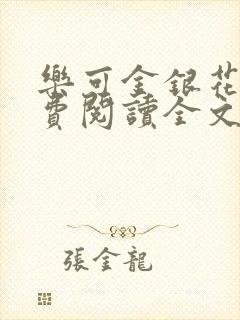 樂可金銀花
費閱讀全文
張金龍